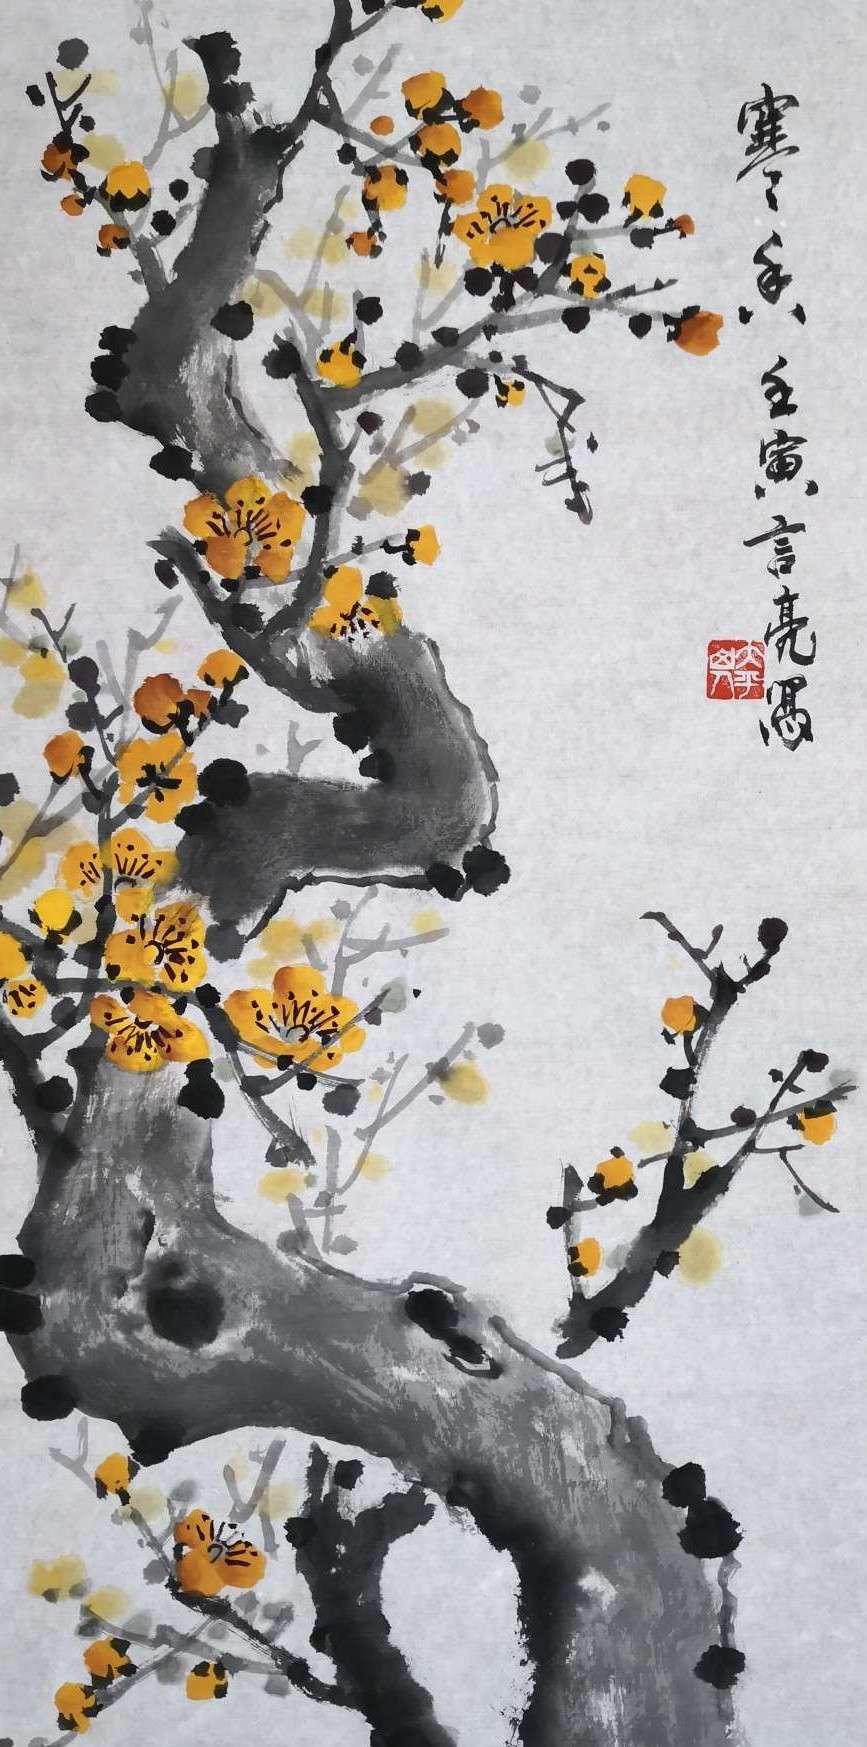 寒香 壬寅 言亮写